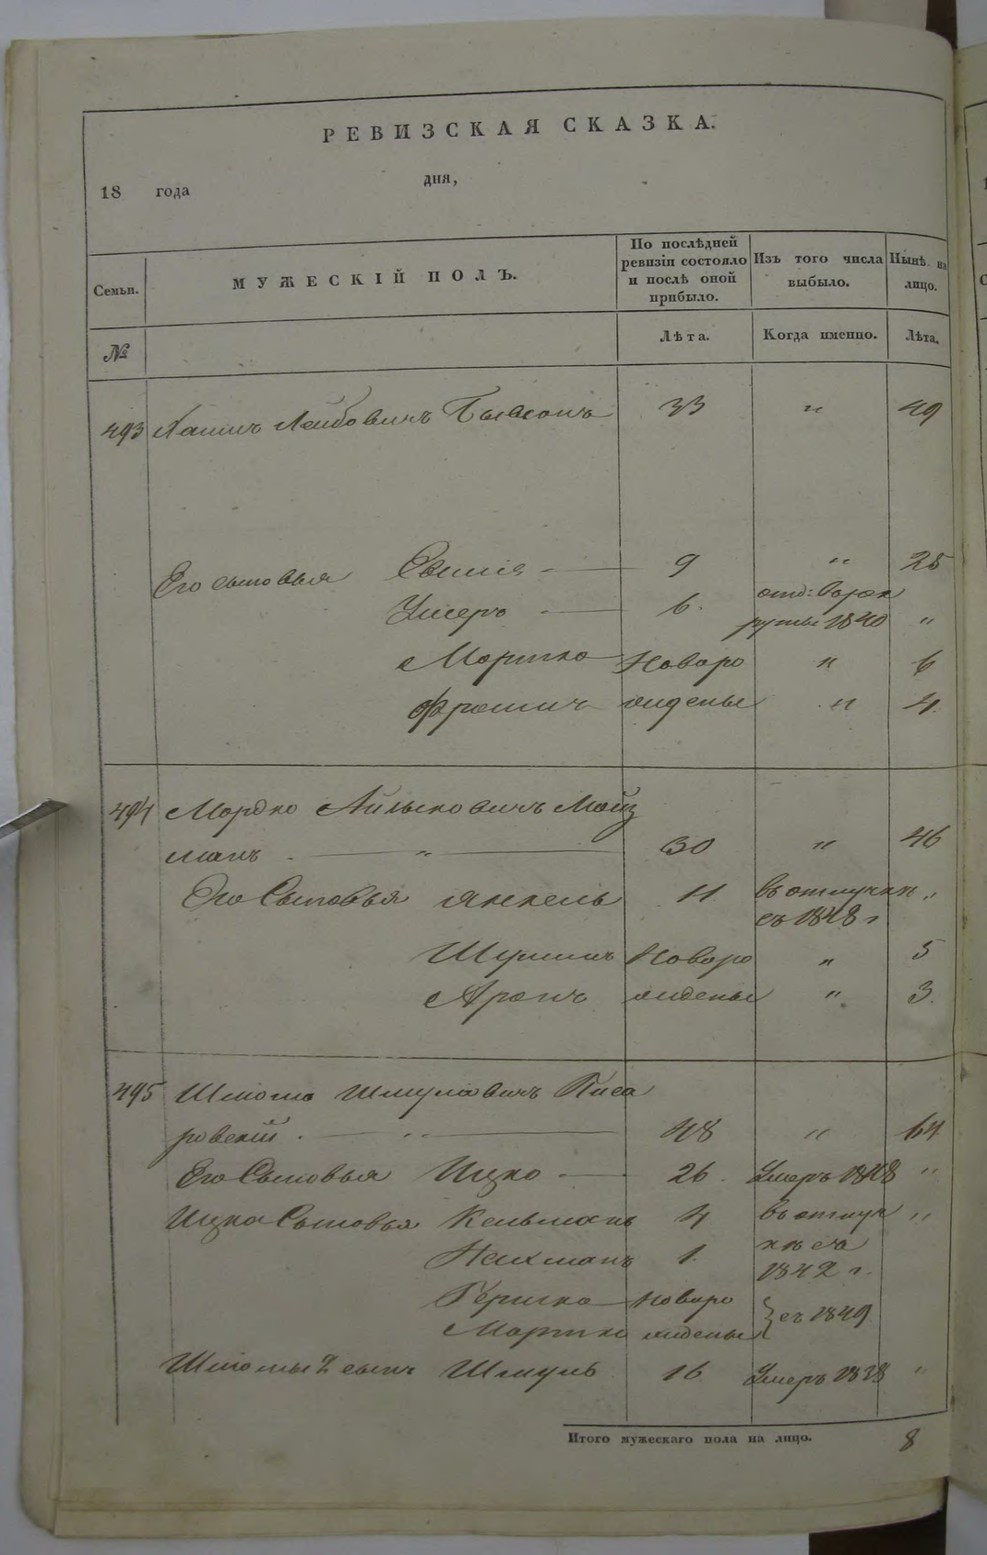 РЕВИЗСКАЯ СКАЗКА.
18 года дня,
Семьи. МУЖЕСКІЙ ПОЛЪ. По послѣдней ревизіи состояло и послѣ оной прибыло. Изъ того числа выбыло. Нынѣ на лицо.
№ Лѣта. Когда именно. Лѣта.
493 Лейбовичъ 33 " 49
Его сыновья 9 " 25
6. 1840 "
Моршко Новоро " 6
Фроимъ жденые " 4
494 Мордко Мойз
манъ " 30 " 46
Его Сыновья Янкель 11 въ отлучкѣ "
съ 1848 г
Шулимъ Новоро " 5
Аронъ жденые " 3.
495 Шлиома Шмулевичъ Писа
ровскій " 48 " 64
Его Сыновья Ицко 26. Умеръ 1848 "
Ицка Сыновья Кельманъ 4 въ отлуч "
Нахманъ 1. кѣ съ
1842 г.
Гершко Новоро съ 1849
жденые
Шлиомы 2 сынъ Шмуль 16 Умеръ 1838 "
Итого мужескаго пола на лицо. 8